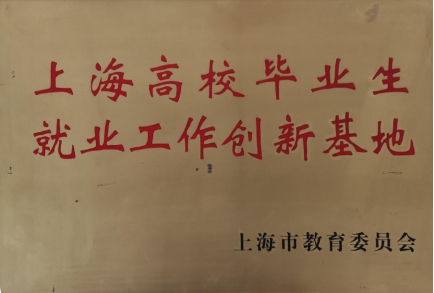 上海高校毕业生
就业工作创新基地
上海市教育委员会